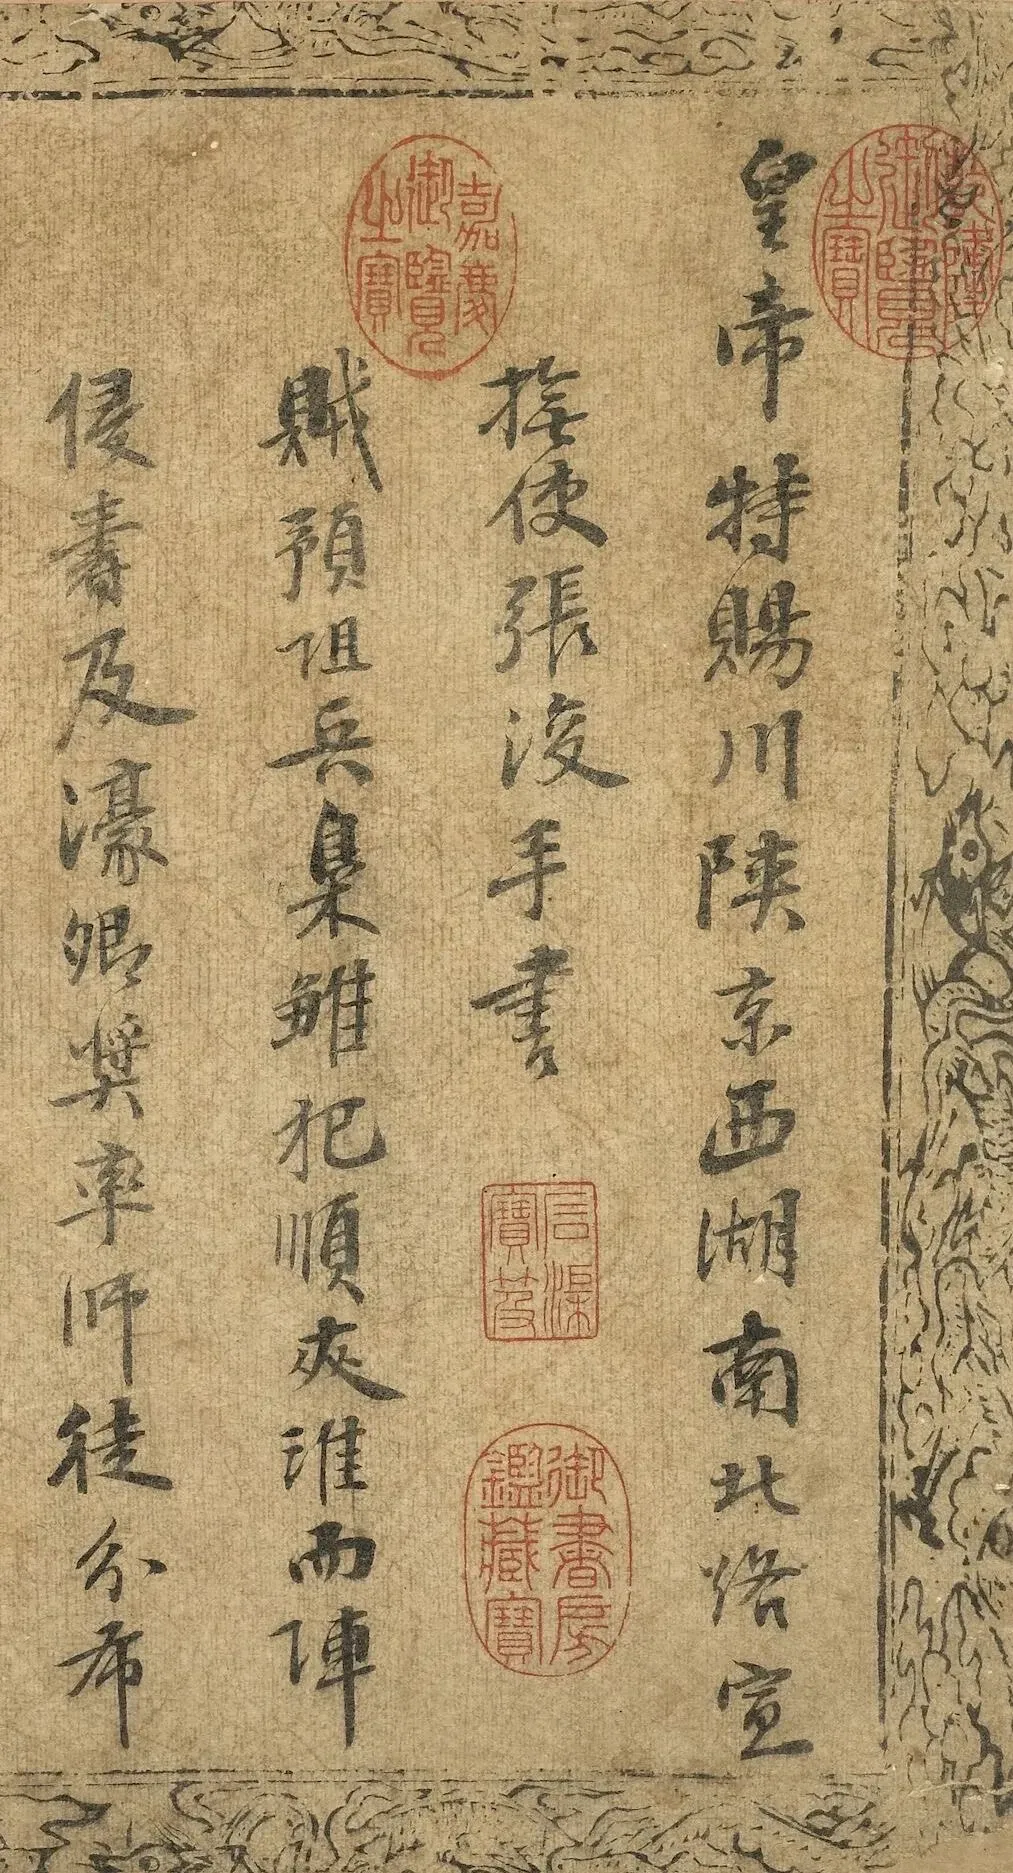 乾隆御覽之寶
皇帝特賜川陝京西湖南北路宣
撫使張浚手書
石渠寶笈
御書房鑑藏寶
嘉慶御覽之寶
賊預阻兵梟雛犯順夾淮而陣
侵壽及濠卿獎率師徒分布